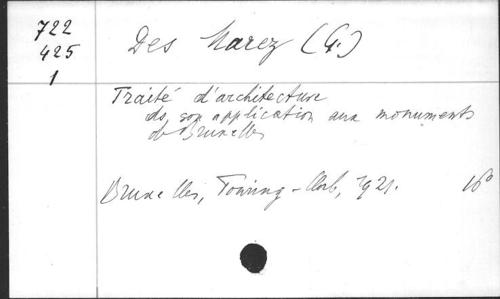 722
425
1
Des Marez (G.)
Traité d'architecture
ds son application aux monuments
de Bruxelles
Bruxelles, Touring-Club, 1921. 16º